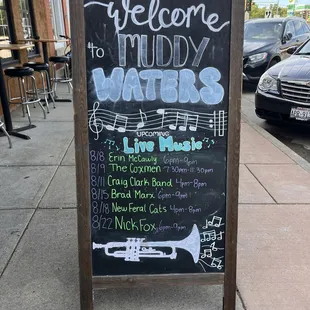 Welcome
to MUDDY
WATERS
UPCOMING
Live Music
8/8 Erin McCawly 6pm-9pm
8/9 The Coxmen 7:30pm-11:30pm
8/11 Craig Clark Band 4pm-8pm
8/15 Brad Marx 6pm-9pm
8/18 New Feral Cats 4pm-8pm
8/22 Nick Fox 6pm-9pm